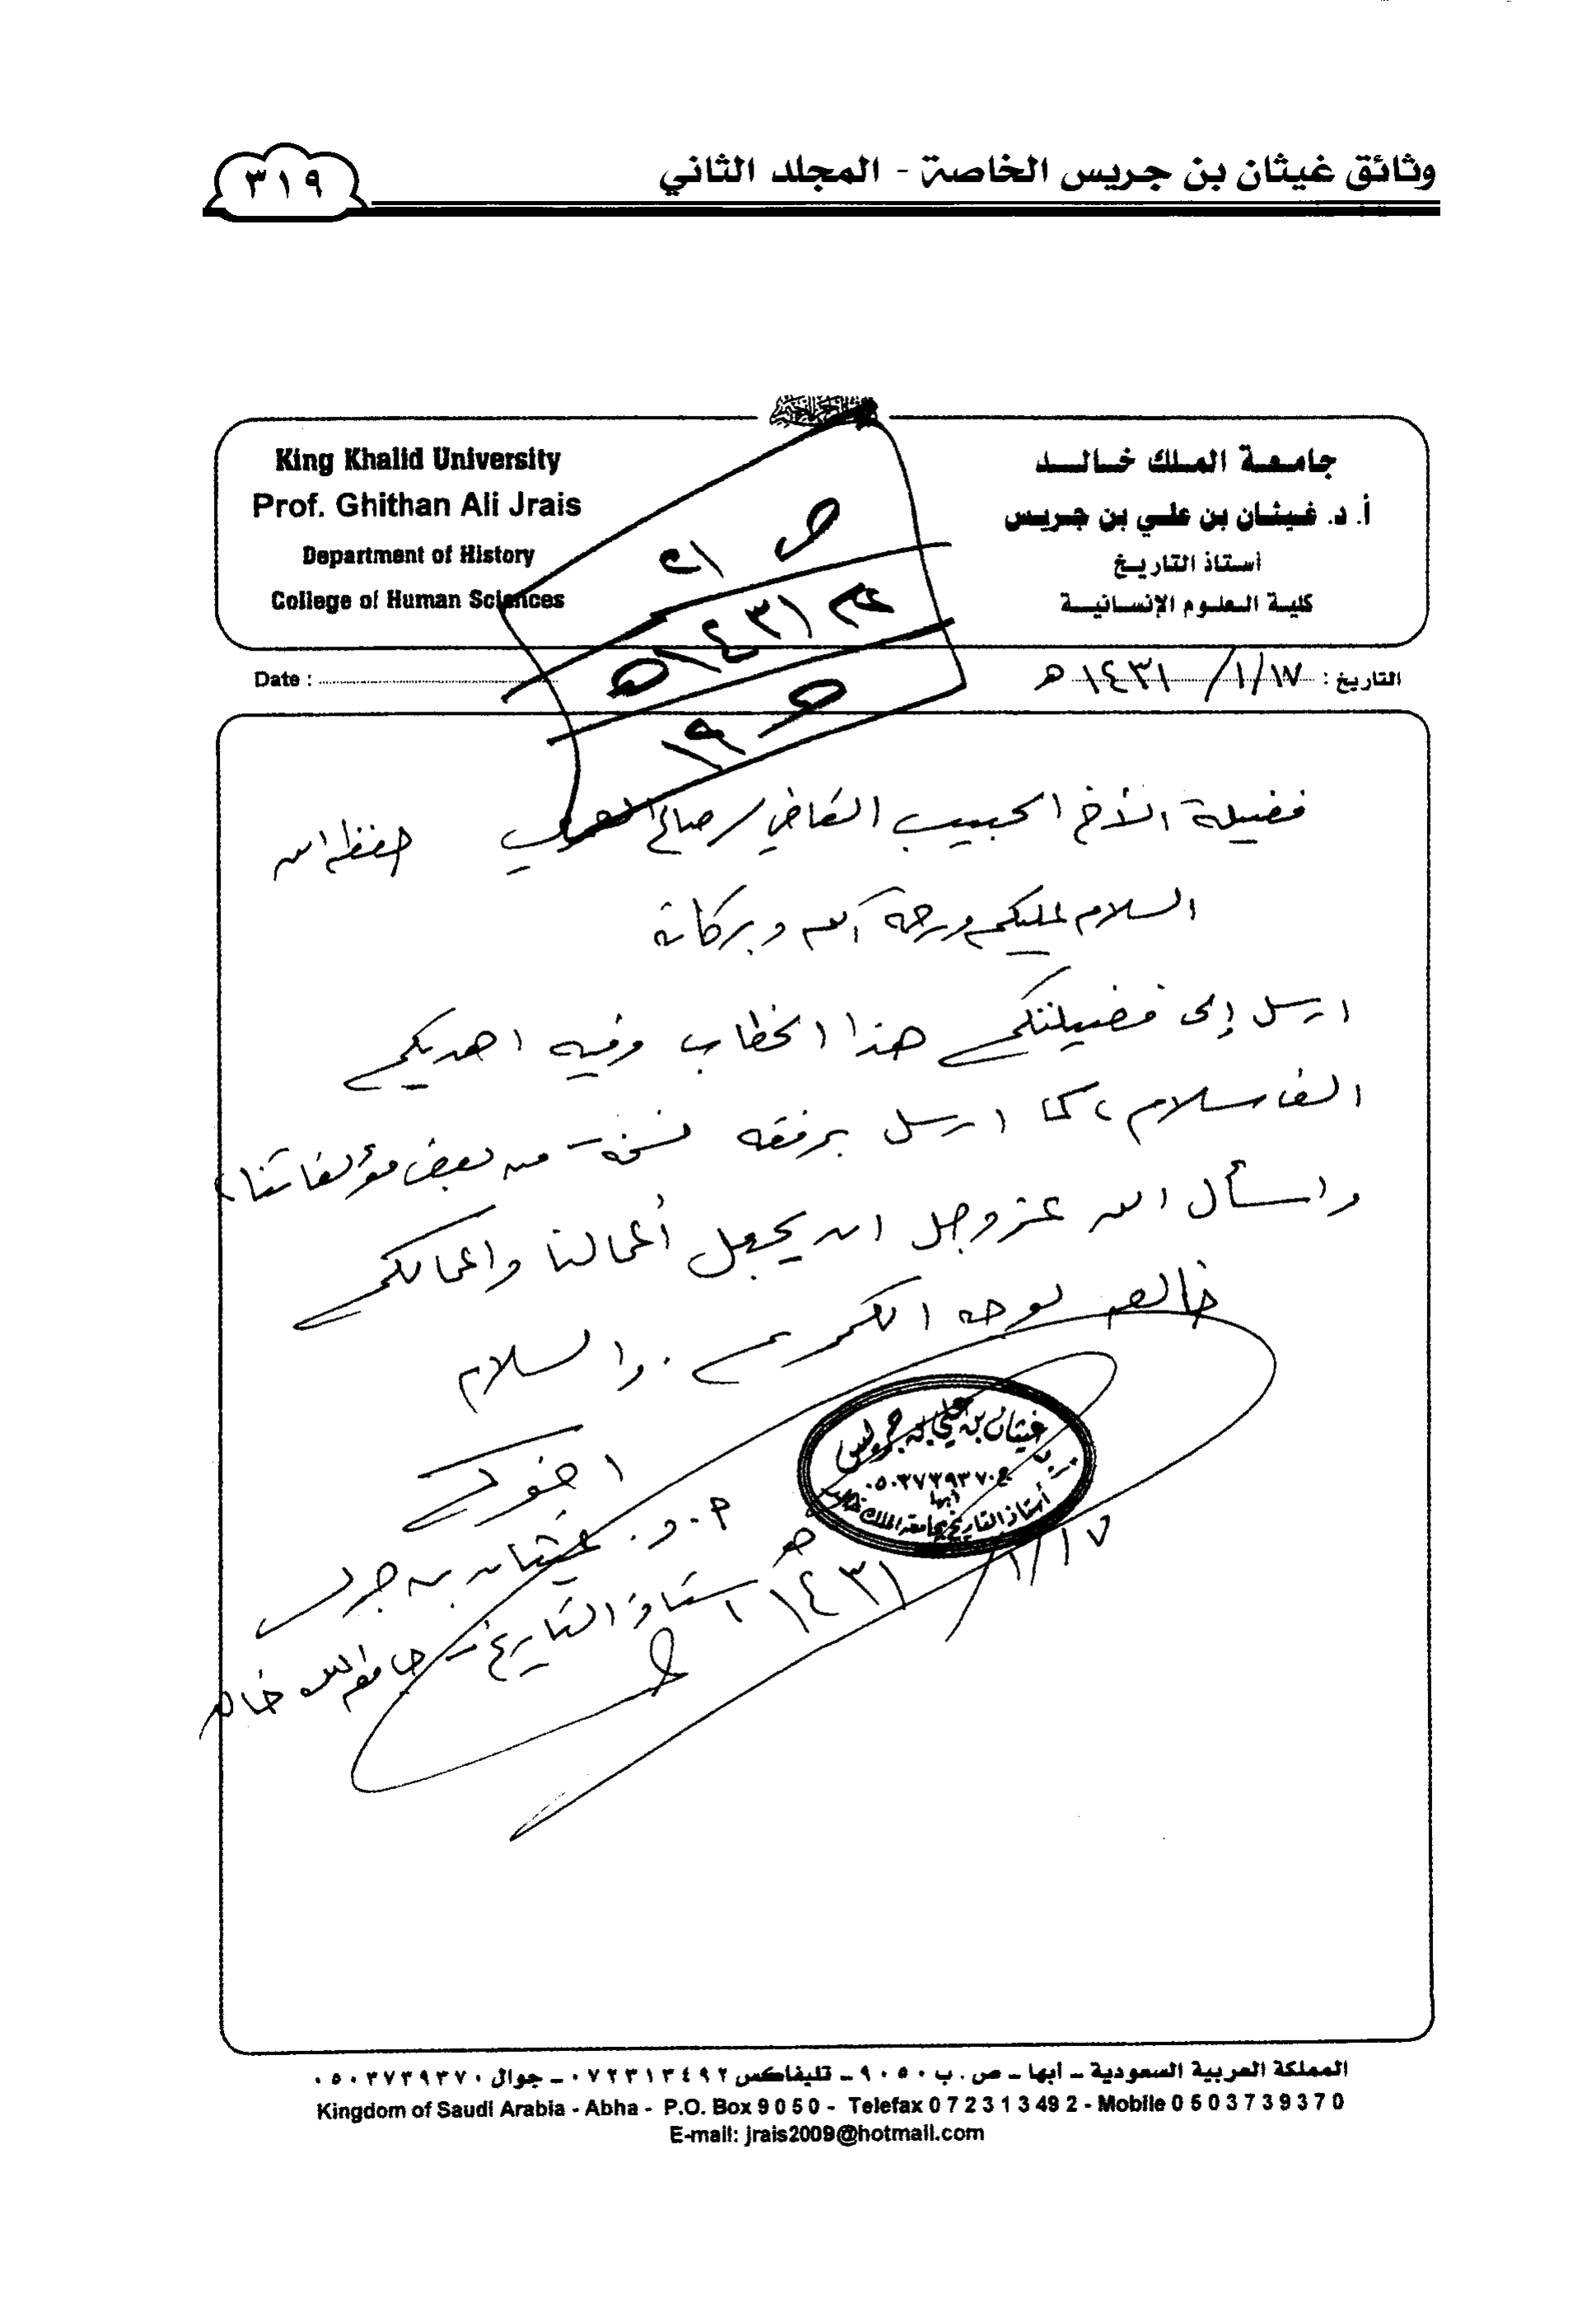 وثائق غيثان بن جريس الخاصة - المجلد الثاني
٣١٩
جامعة الملك خالد
أ. د. غيثان بن علي بن جريس
أستاذ التاريخ
كلية العلوم الإنسانية
King Khalid University
Prof. Ghithan Ali Jrais
Department of History
College of Human Sciences
ص
١٤٣١ هـ
١٩
التاريخ : ١٧/ ١/ ١٤٣١ هـ
Date :
فضيلة الأخ الحبيب القاضي / صالح حفظه الله
السلام عليكم ورحمة الله وبركاته
ارسل إلى فضيلتكم هذا الخطاب وفيه اهديكم
الف سلام، كما ارسل برفقه نسخة من بعض مؤلفاتنا،
واسأل الله عز وجل ان يجعل أعمالنا واعمالكم
خالصه لوجه الكريم . والسلام
اخوكم
أ. د. غيثان بن جريس
استاذ التاريخ - جامعة الملك خالد
١٧/ ١/ ١٤٣١ هـ
غيثان بن علي بن جريس
ج ٠٥٠٣٧٣٩٣٧٠
أبها
أستاذ التاريخ بجامعة الملك خالد
المملكة العربية السعودية – أبها – ص . ب ٩٠٥٠ – تليفاكس ٠٧٢٣١٣٤٩٢ – جوال ٠٥٠٣٧٣٩٣٧٠
Kingdom of Saudi Arabia - Abha - P.O. Box 9 0 5 0 - Telefax 0 7 2 3 1 3 49 2 - Mobile 0 5 0 3 7 3 9 3 7 0
E-mail: jrais2009@hotmail.com